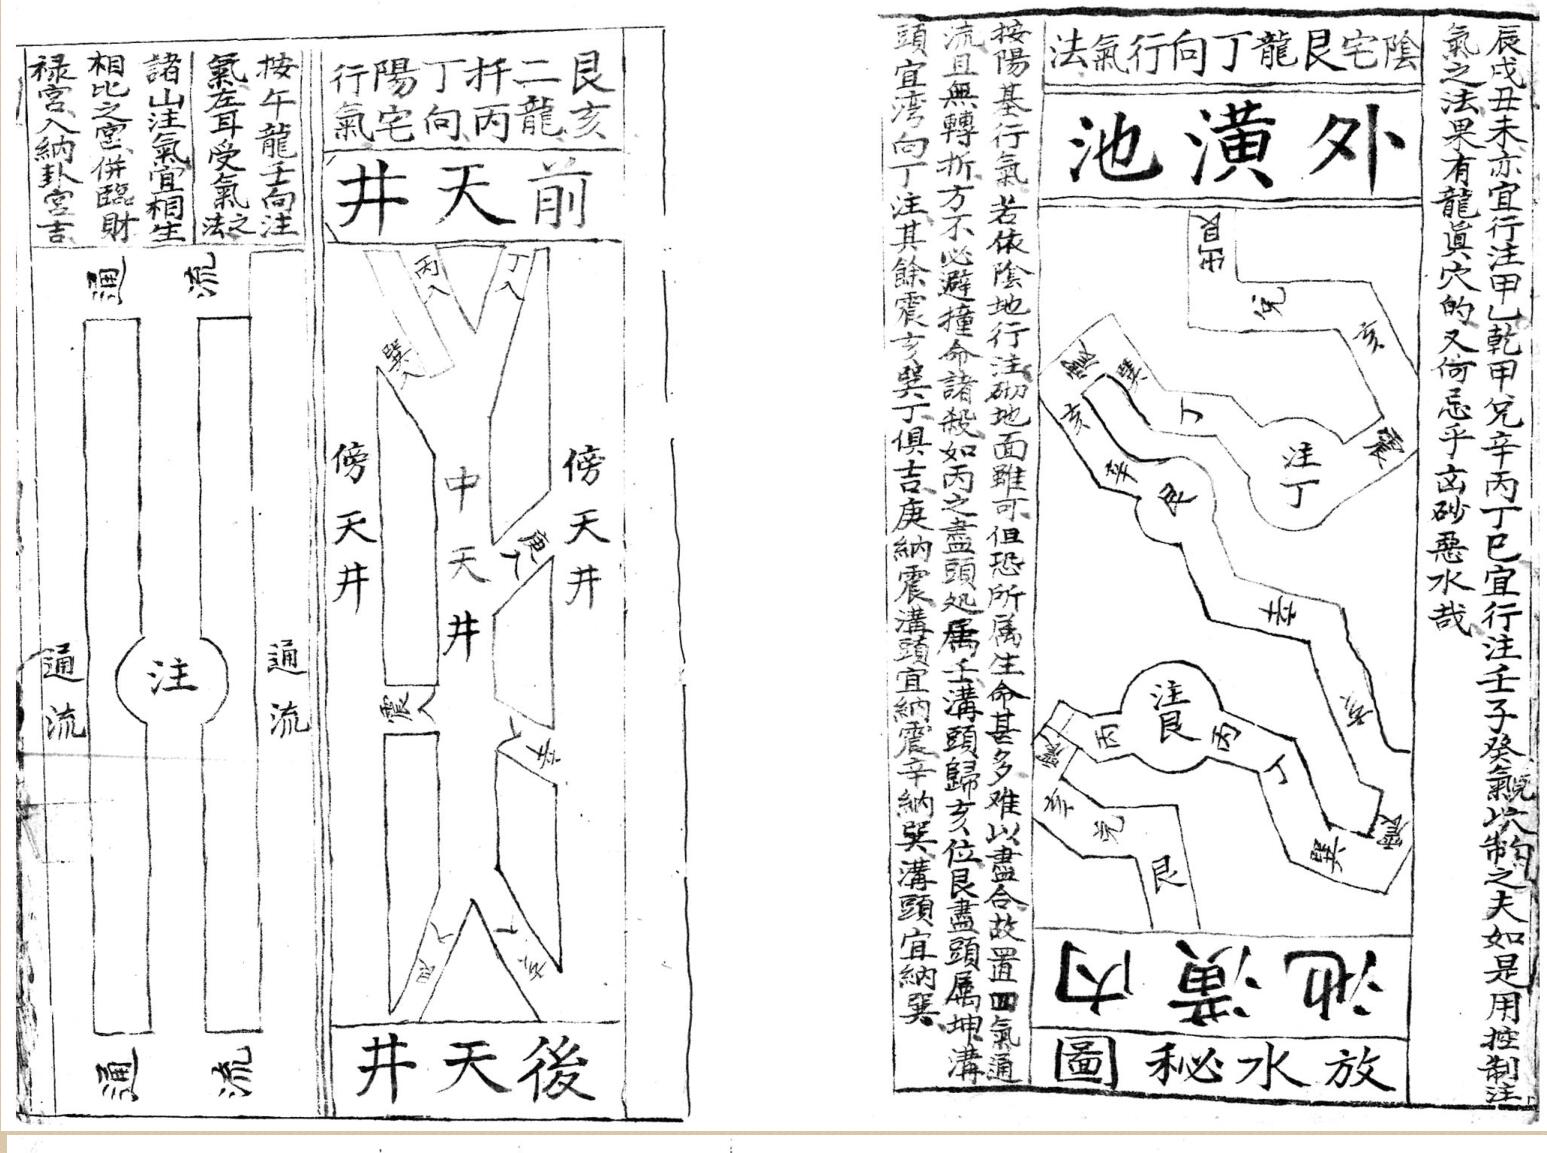 辰戌丑未亦宜行注甲乙乾甲兌辛丙丁巳宜行注壬子癸氣脫穴的制之夫如是用控制注
氣之法果有龍眞穴的又何忌乎凶砂惡水哉
陰宅艮龍丁向行氣法
外潢池
出艮
兌
亥
震
注丁
丁
巽
震
亥
辛
甲
辛
亥
震
巽
丁
丙
注艮
丙
震
辛
兌
艮
內潢池
放水秘圖
按陽基行氣若依陰地行注砌地面雖可但恐所属生命甚多难以盡合故置四氣通
流且無轉折方不必避撞命諸殺如丙之盡頭処属壬溝頭歸亥位艮盡頭属坤溝
頭宜湾向丁注其餘震亥巽丁俱吉庚納震溝頭宜納震辛納巽溝頭宜納巽
艮亥
二龍
扦丙
丁向
陽宅
行氣
前天井
丁入
丙入
巽入
傍天井
中天井
傍天井
庚入
震入
辛入
艮入
後天井
按午龍壬向注
氣左耳受氣之法
諸山注氣宜相生
相比之宮併臨財
祿宮入納卦宮吉
通流
通流
注
通流
通流